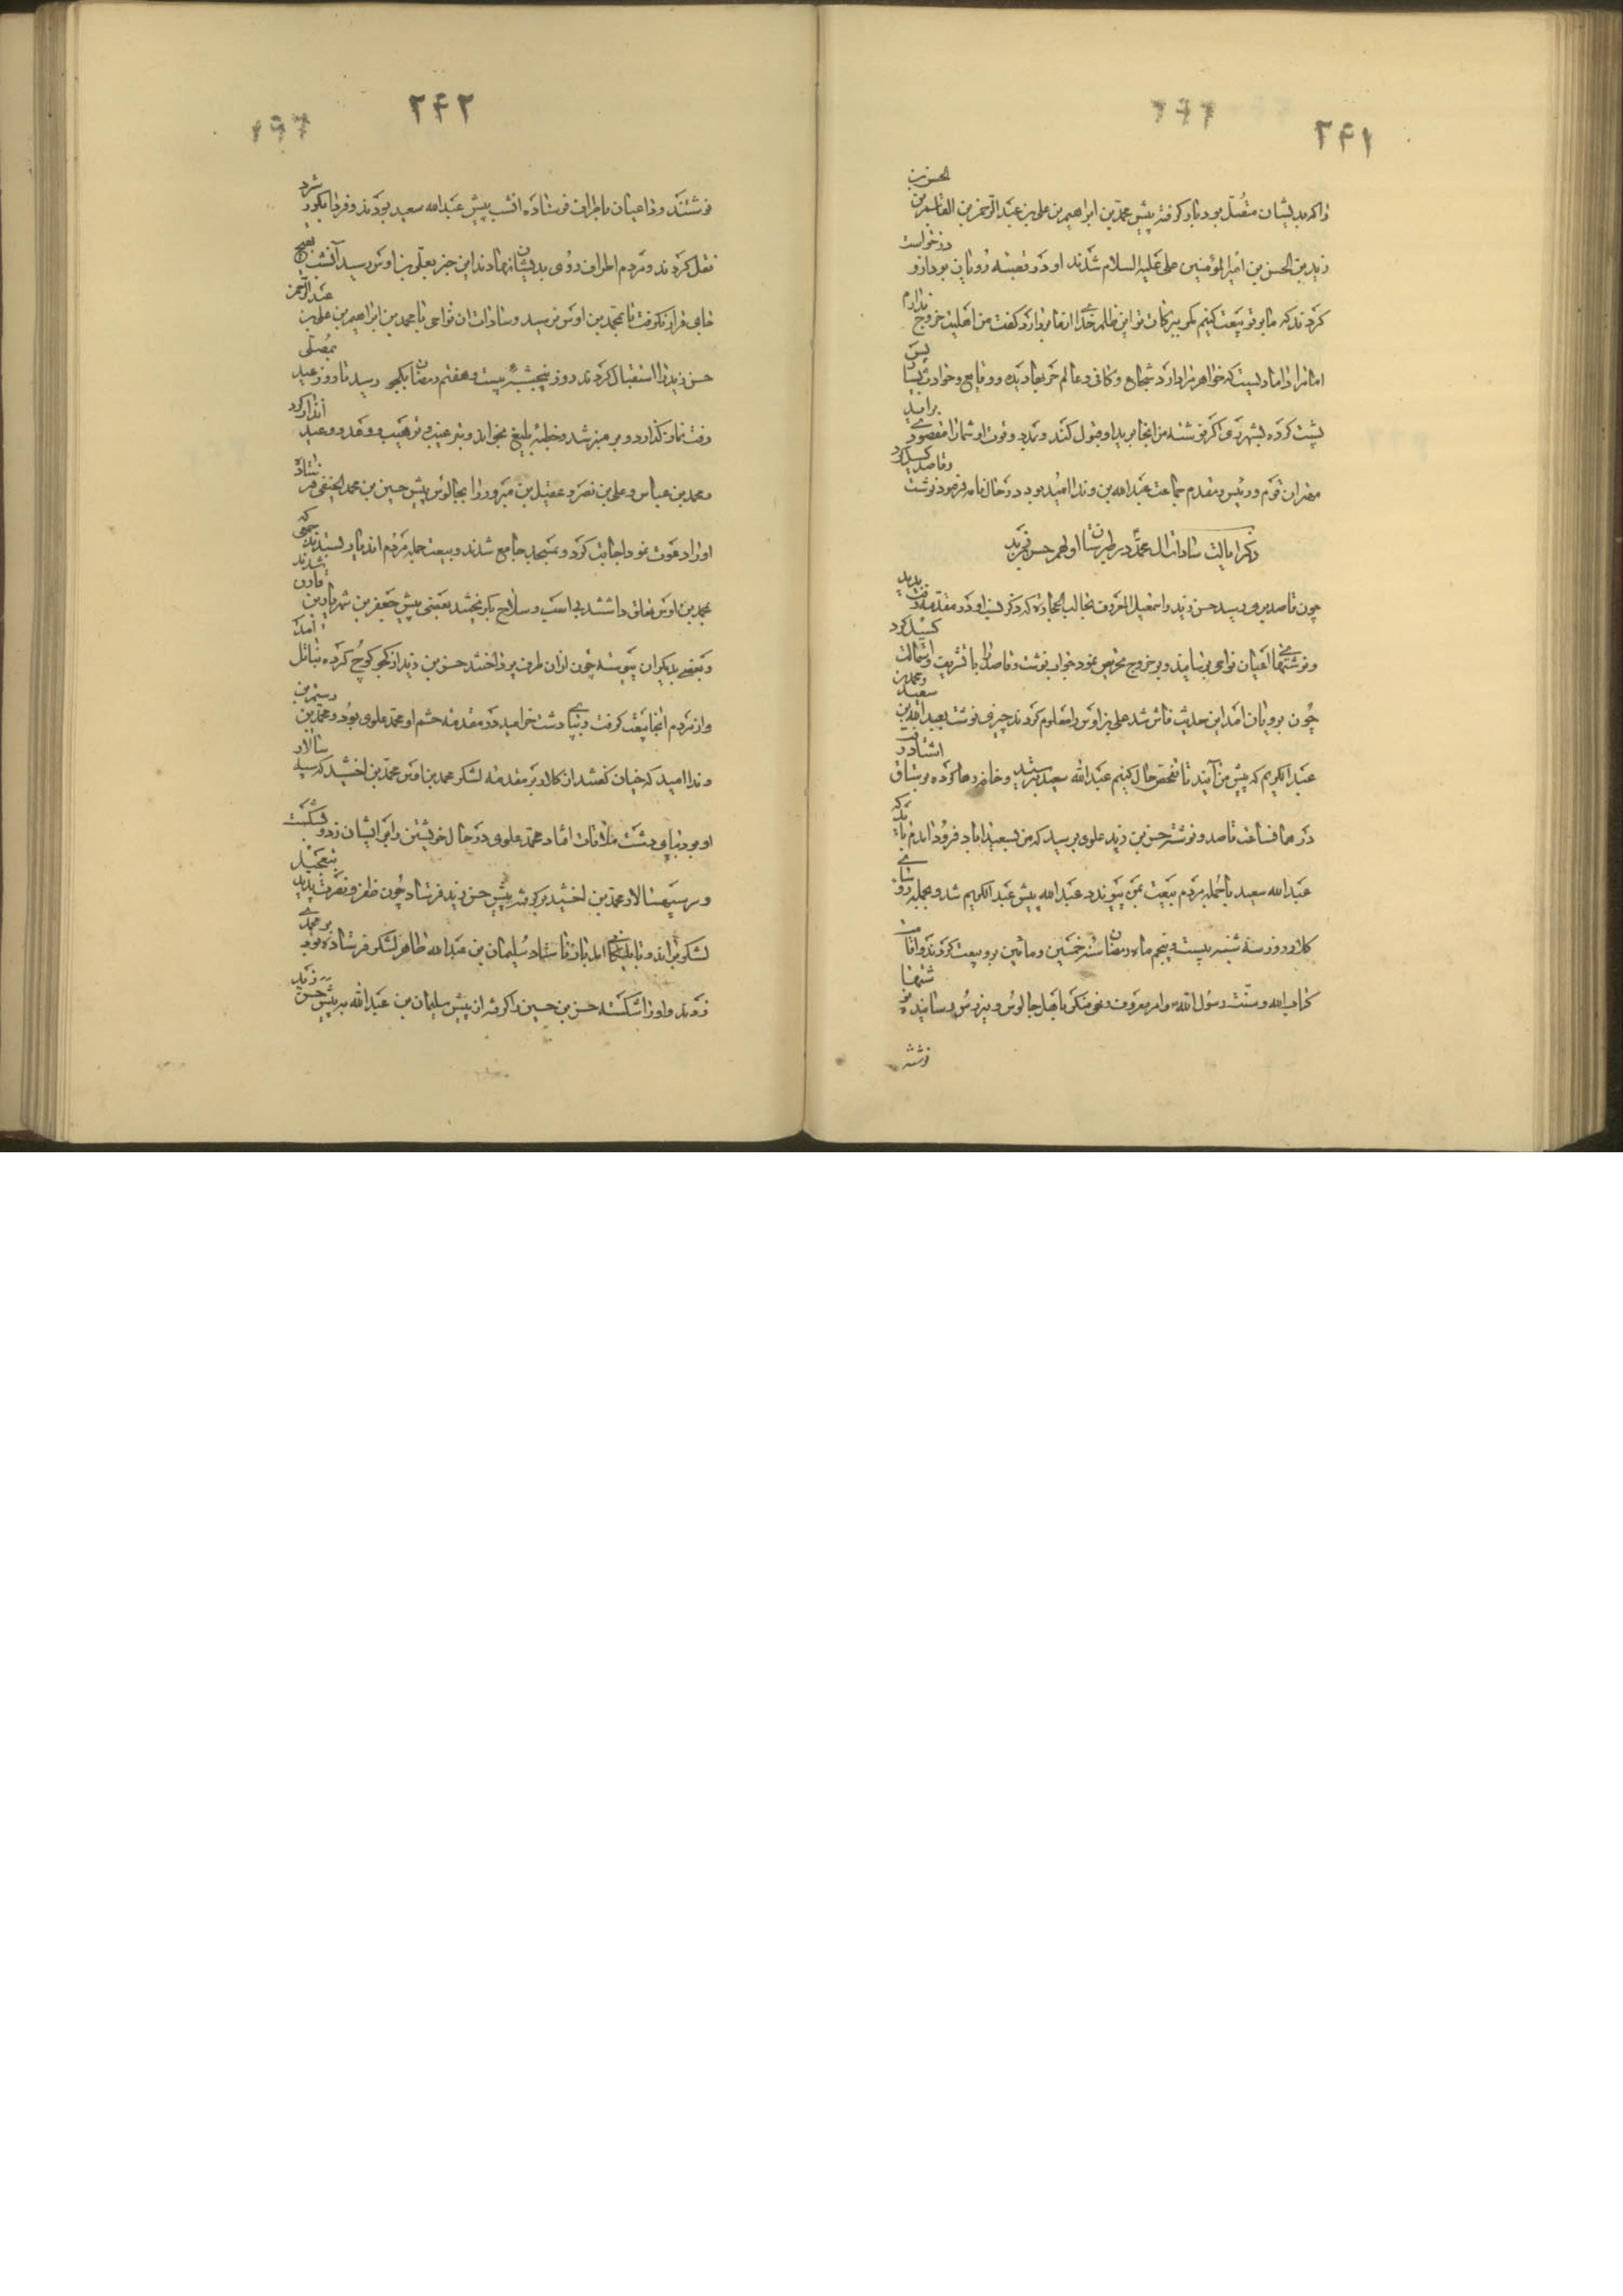 ۲۴۱
را که بدیشان متصل بود یاد کرفته پیش محمد بن ابراهیم بن علی بن عبد الرحمن بن القاسم بن الحسن بن
زید بن الحسن بن امیر المؤمنین علی علیه السلام شدند او در قصبه رویان بود ازو درخواست
کردند که ما بر تو بیعت کنیم مکر ببرکات تو این ظلم خدای از ما بردارد کفت من اهلیت خروج ندارم
اما مرا دامادیست که خواهر مرا دارد شجاع و کافی و عالم حربها دیده و وقایع و حوادث بسیار پس
پشت کرده بشهر ری اکر نوشته من انجا برید او قبول کند و بمدد و قوت او شما را مقصود برآید
مهتران قوم و رئیس و مقدم جماعت عبد الله بن وندا امید بود در حال نامه فرمود نوشت و قاصد کسیل کرد
ذکر ایالت سادات آل محمد در طبرستان اولهم حسن بن زید
چون قاصد بری رسید حسن زید و اسمعیل المعروف بجالب الحجارة که ذکر نسب او در مقدمه رفت بدید
و نوشتهای اعیان نواحی برسانید و بر خروج تحریض نمود جواب نوشت و قاصد را با تشریف و استمالت کسیل کرد
چون برویان آمد این حدیث فاش شد علی بن اوس را معلوم کردند چیزی نوشت بعبد الله بن سعید و محمد بن
عبد الکریم که پیش من آیید تا تفحص حال کنیم عبد الله سعید بترسید و خانه رها کرده برستاق استاد رفت
در همان ساعت قاصد و نوشته حسن بن زید علوی برسید که من بسعید اباد فرود آمدم باید که
عبد الله سعید با جمله مردم بیعت بمن پیوندد عبد الله پیش عبد الکریم شد و بجمله رؤسای
کلار روز سه شنبه بیست و پنجم ماه رمضان سنه خمسین و مائین برو بیعت کردند و اقامت
کتاب الله و سنت رسول الله و امر معروف و نهی منکر باهل جالوس و نیروس رسانید نوشتها
نوشته
۲۴۲
نوشتند و داعیان باطراف فرستاده انشب پیش عبد الله سعید بودند و فردا بکورشرد
نقل کردند و مردم اطراف روی بدیشان نهادند این خبر بعلی بن اوس رسید آنشب بهیچ
جای قرار نکرفت تا بمحمد بن اوس نرسید و سادات ان نواحی با محمد بن ابراهیم بن علی بن عبد الرحمن
حسن زید را استقبال کردند روز پنجشنبه بیست و هفتم رمضان بکجو رسید تا روز عید بمصلی
رفت نماز کذارد و بر منبر شد و خطبه بلیغ بخواند و بترغیب و ترهیب و وعد و وعید انذار کرد
و محمد بن عباس و علی بن نصر و عقیل بن مبرور را بجالوس پیش حسین بن محمد الحنفی فرستاد
او را دعوت نمود اجابت کرد و بمسجد جامع شدند و بیعت جمله مردم اندیار بستدند جمعی که
بمحمد بن اوس تعلق داشتند بی اسب و سلاح بکریختند بعضی پیش جعفر بن شهریار بن قارن شدند
و بعضی بدیکران پیوسته چون ازان طرف پرداختند حسن بن زید از کجو کوچ کرده بناتل آمد
و از مردم انجا بیعت کرفت و بپای دشت خرامید در مقدمه حشم او محمد علوی بود و محمد بن رستم بن
وندا امید که خیان کفتند از کلار بر مقدمه لشکر محمد بن اوس محمد بن اخشید که سپه سالار
او بود بپای دشت ملاقات افتاد محمد علوی در حال خویشتن را بر ایشان زد و بشکست
و سر سپهسالار محمد بن اخشید برکرفته پیش حسن زید فرستاد چون ظفر و نصرت بدید بتعجیل
لشکر براند و تا بلیکانی آمد باز ماستاد سلیمان بن عبد الله طاهر لشکر فرستاده بود بر محمد
زدند و او را شکسته حسن بن حسین را کرفته از پیش سلیمان بن عبد الله به پیش حسن زید